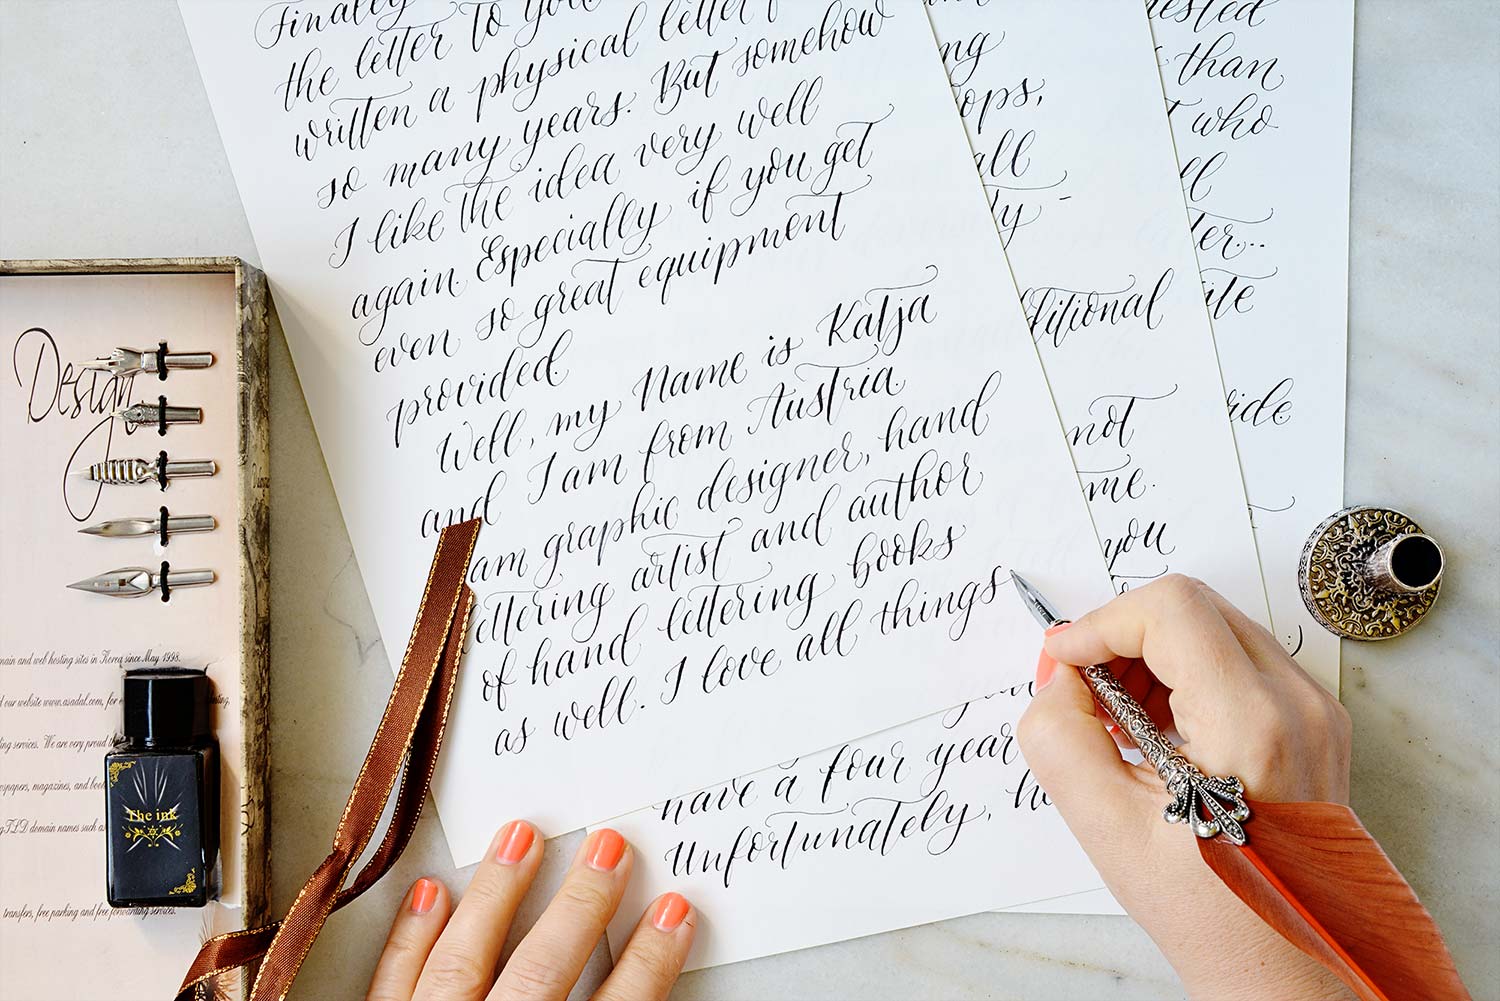 Finally
the letter to you
written a physical letter
so many years. But somehow
I like the idea very well
again. Especially if you get
even so great equipment
provided.
Well, my Name is Katja
and I am from Austria.
am graphic designer, hand
lettering artist and author
of hand lettering books
as well. I love all things
ng
ops,
all
ty -
ditional
not
me.
you
have a four year
Unfortunately, he
ested
than
who
ll
ter...
ite
ide
:)
Design
main and web hosting sites in Korea since May 1998.
d our website www.asadal.com, for
ting services. We are very proud
wspapers, magazines, and
gTLD domain names such as
transfers, free parking and free forwarding services.
The ink